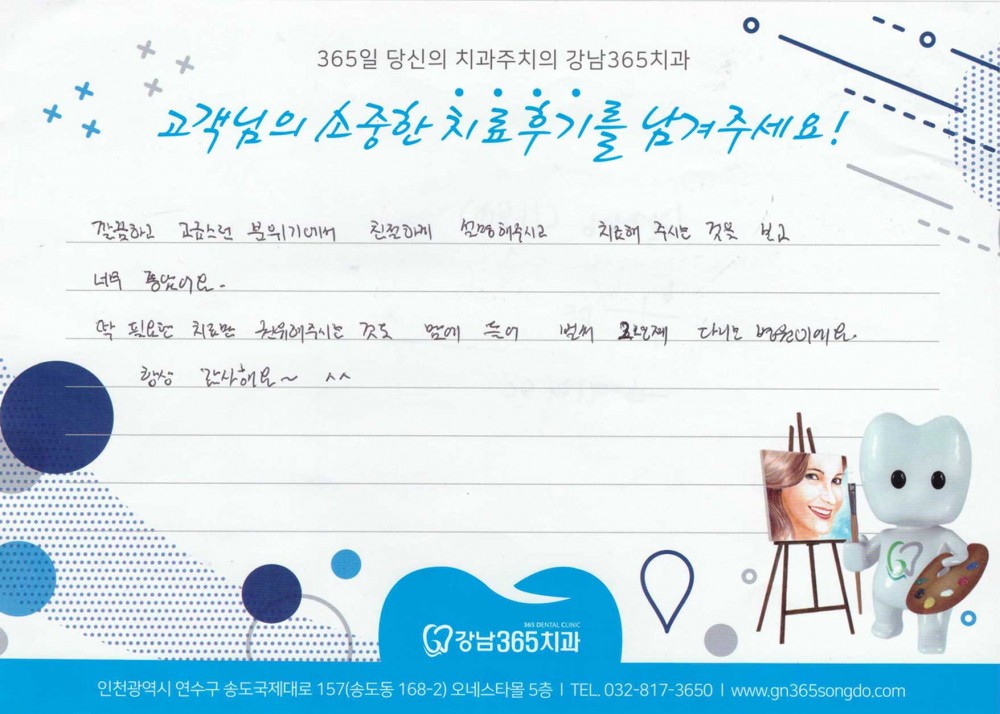 365일 당신의 치과주치의 강남365치과
고객님의 소중한 치료후기를 남겨주세요!
깔끔하고 고급스런 분위기에서 친절하게 설명해주시고 치료해 주시는 것을 보고
너무 좋았어요.
딱 필요한 치료만 권유해주시는 것도 맘에 들어 벌써 3년째 다니는 병원이에요.
항상 감사해요~ ^^
365 DENTAL CLINIC
강남365치과
인천광역시 연수구 송도국제대로 157(송도동 168-2) 오네스타몰 5층 | TEL. 032-817-3650 | www.gn365songdo.com